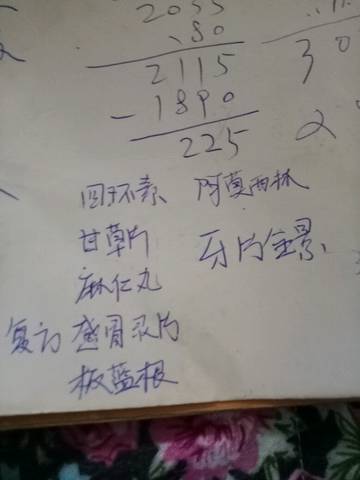 2035
.80
2115
30
-1890
2
225
四环素 阿莫西林
甘草片
牙片全景
麻仁丸
复方 感冒灵片
板蓝根